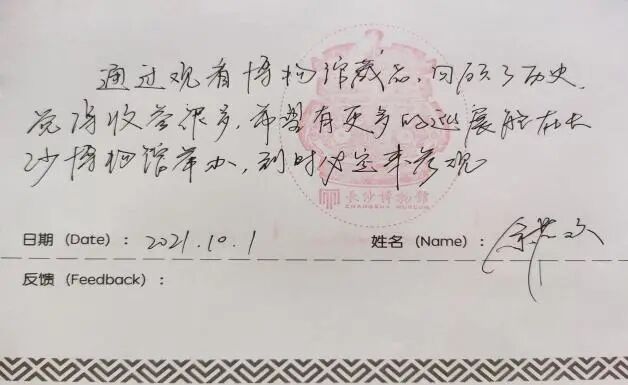 通过观看博物馆藏品，回顾了历史，
觉得收益很多，希望有更多的巡展能在长
沙博物馆举办，到时必定来参观
長沙博物館
CHANGSHA MUSEUM
日期（Date）：2021.10.1 姓名（Name）：余
反馈（Feedback）：